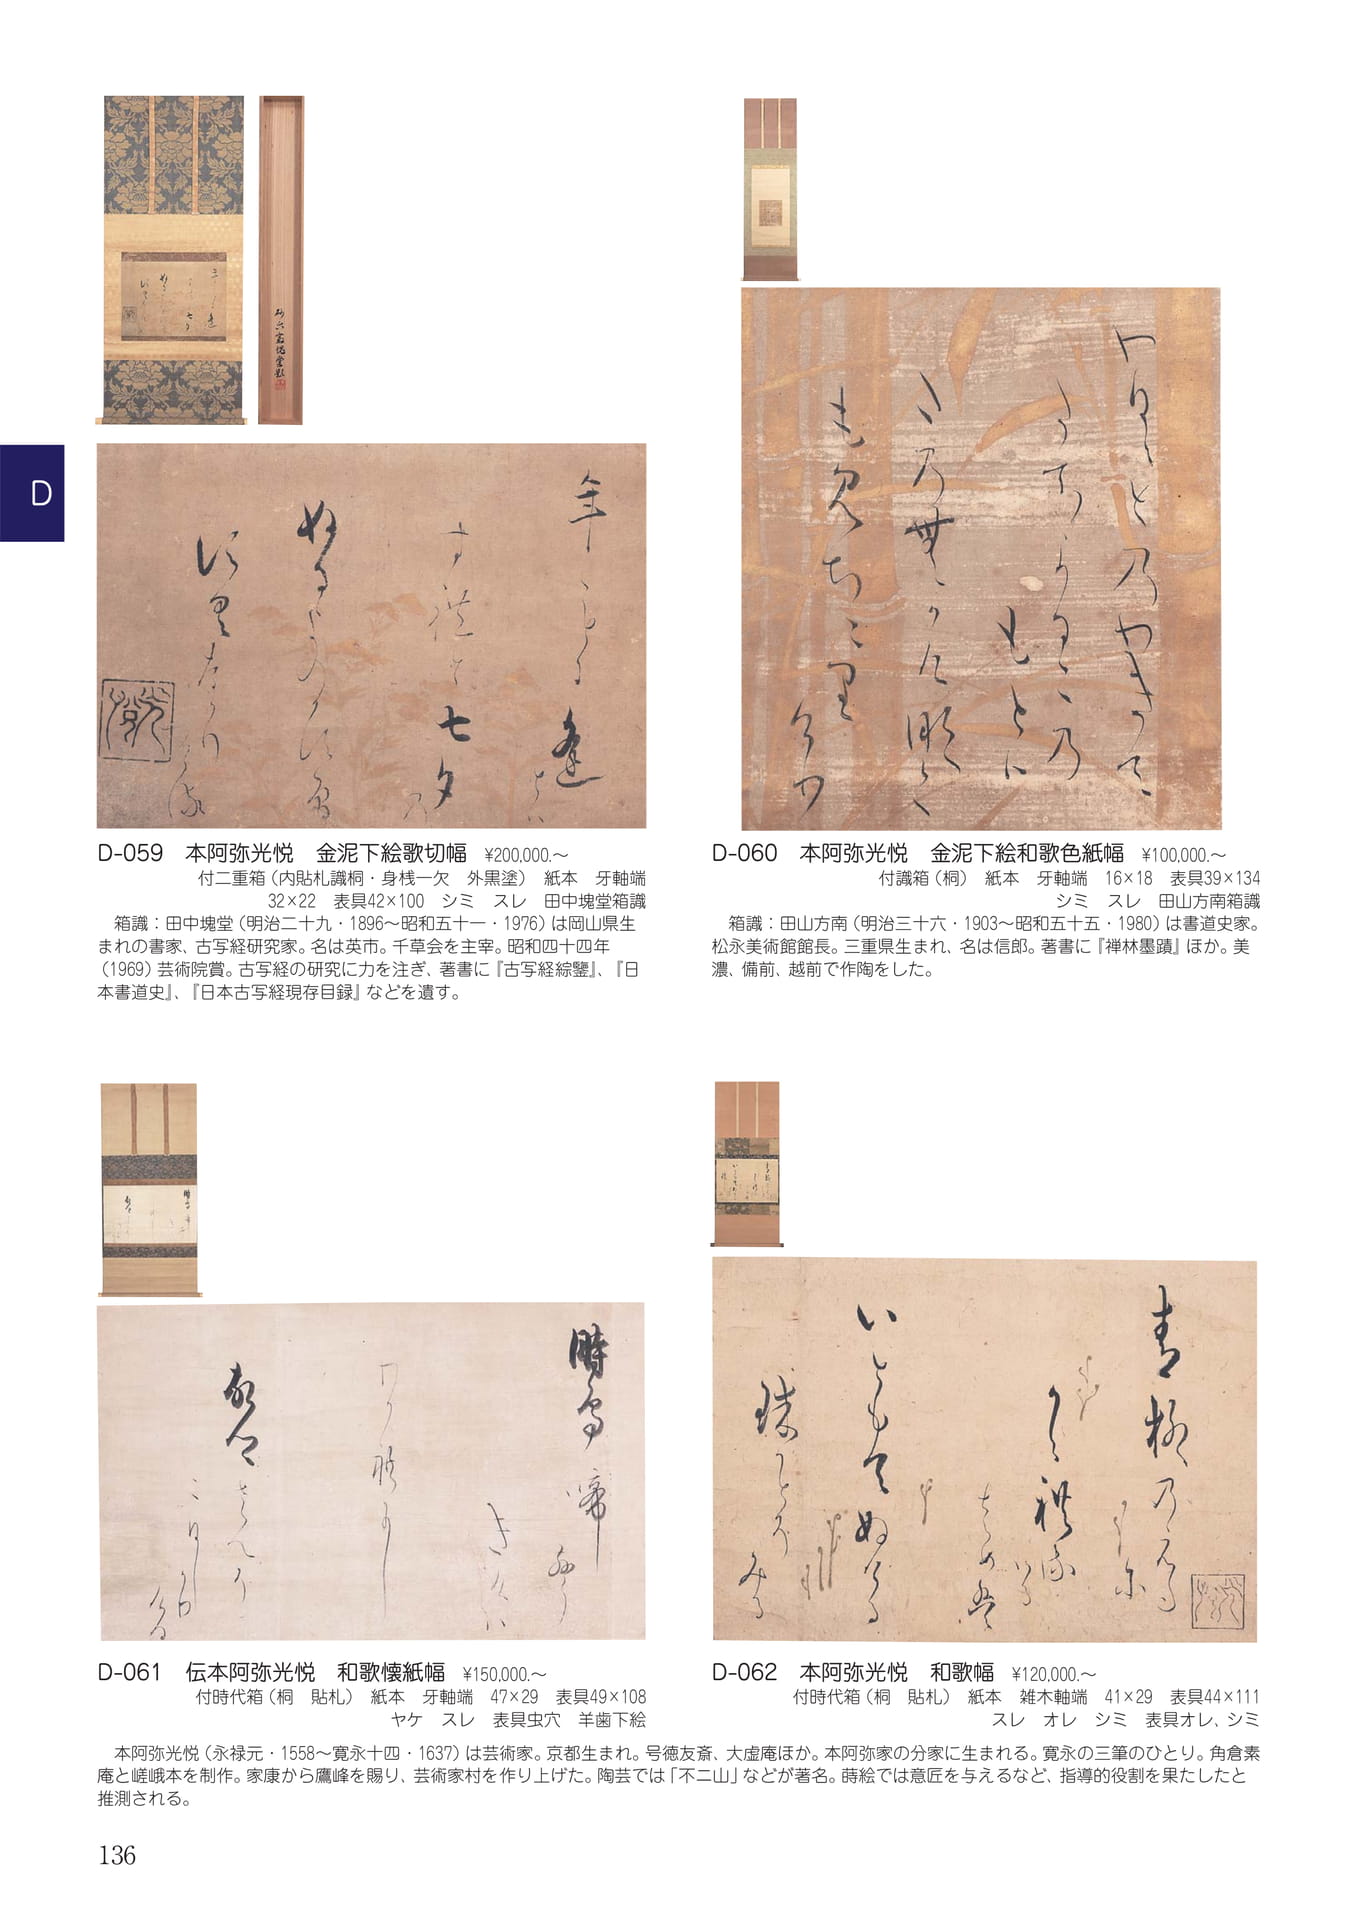 D
D-059 本阿弥光悦 金泥下絵歌切幅 ¥200,000.～
付二重箱（内貼札識桐・身桟一欠 外黒塗） 紙本 牙軸端
32×22 表具42×100 シミ スレ 田中塊堂箱識
箱識：田中塊堂（明治二十九・1896～昭和五十一・1976）は岡山県生
まれの書家、古写経研究家。名は英市。千草会を主宰。昭和四十四年
（1969）芸術院賞。古写経の研究に力を注ぎ、著書に『古写経綜鑒』、『日
本書道史』、『日本古写経現存目録』などを遺す。
D-060 本阿弥光悦 金泥下絵和歌色紙幅 ¥100,000.～
付識箱（桐） 紙本 牙軸端 16×18 表具39×134
シミ スレ 田山方南箱識
箱識：田山方南（明治三十六・1903～昭和五十五・1980）は書道史家。
松永美術館館長。三重県生まれ、名は信郎。著書に『禅林墨蹟』ほか。美
濃、備前、越前で作陶をした。
D-061 伝本阿弥光悦 和歌懐紙幅 ¥150,000.～
付時代箱（桐 貼札） 紙本 牙軸端 47×29 表具49×108
ヤケ スレ 表具虫穴 羊歯下絵
D-062 本阿弥光悦 和歌幅 ¥120,000.～
付時代箱（桐 貼札） 紙本 雑木軸端 41×29 表具44×111
スレ オレ シミ 表具オレ、シミ
本阿弥光悦（永禄元・1558～寛永十四・1637）は芸術家。京都生まれ。号徳友斎、大虚庵ほか。本阿弥家の分家に生まれる。寛永の三筆のひとり。角倉素
庵と嵯峨本を制作。家康から鷹峰を賜り、芸術家村を作り上げた。陶芸では「不二山」などが著名。蒔絵では意匠を与えるなど、指導的役割を果たしたと
推測される。
136